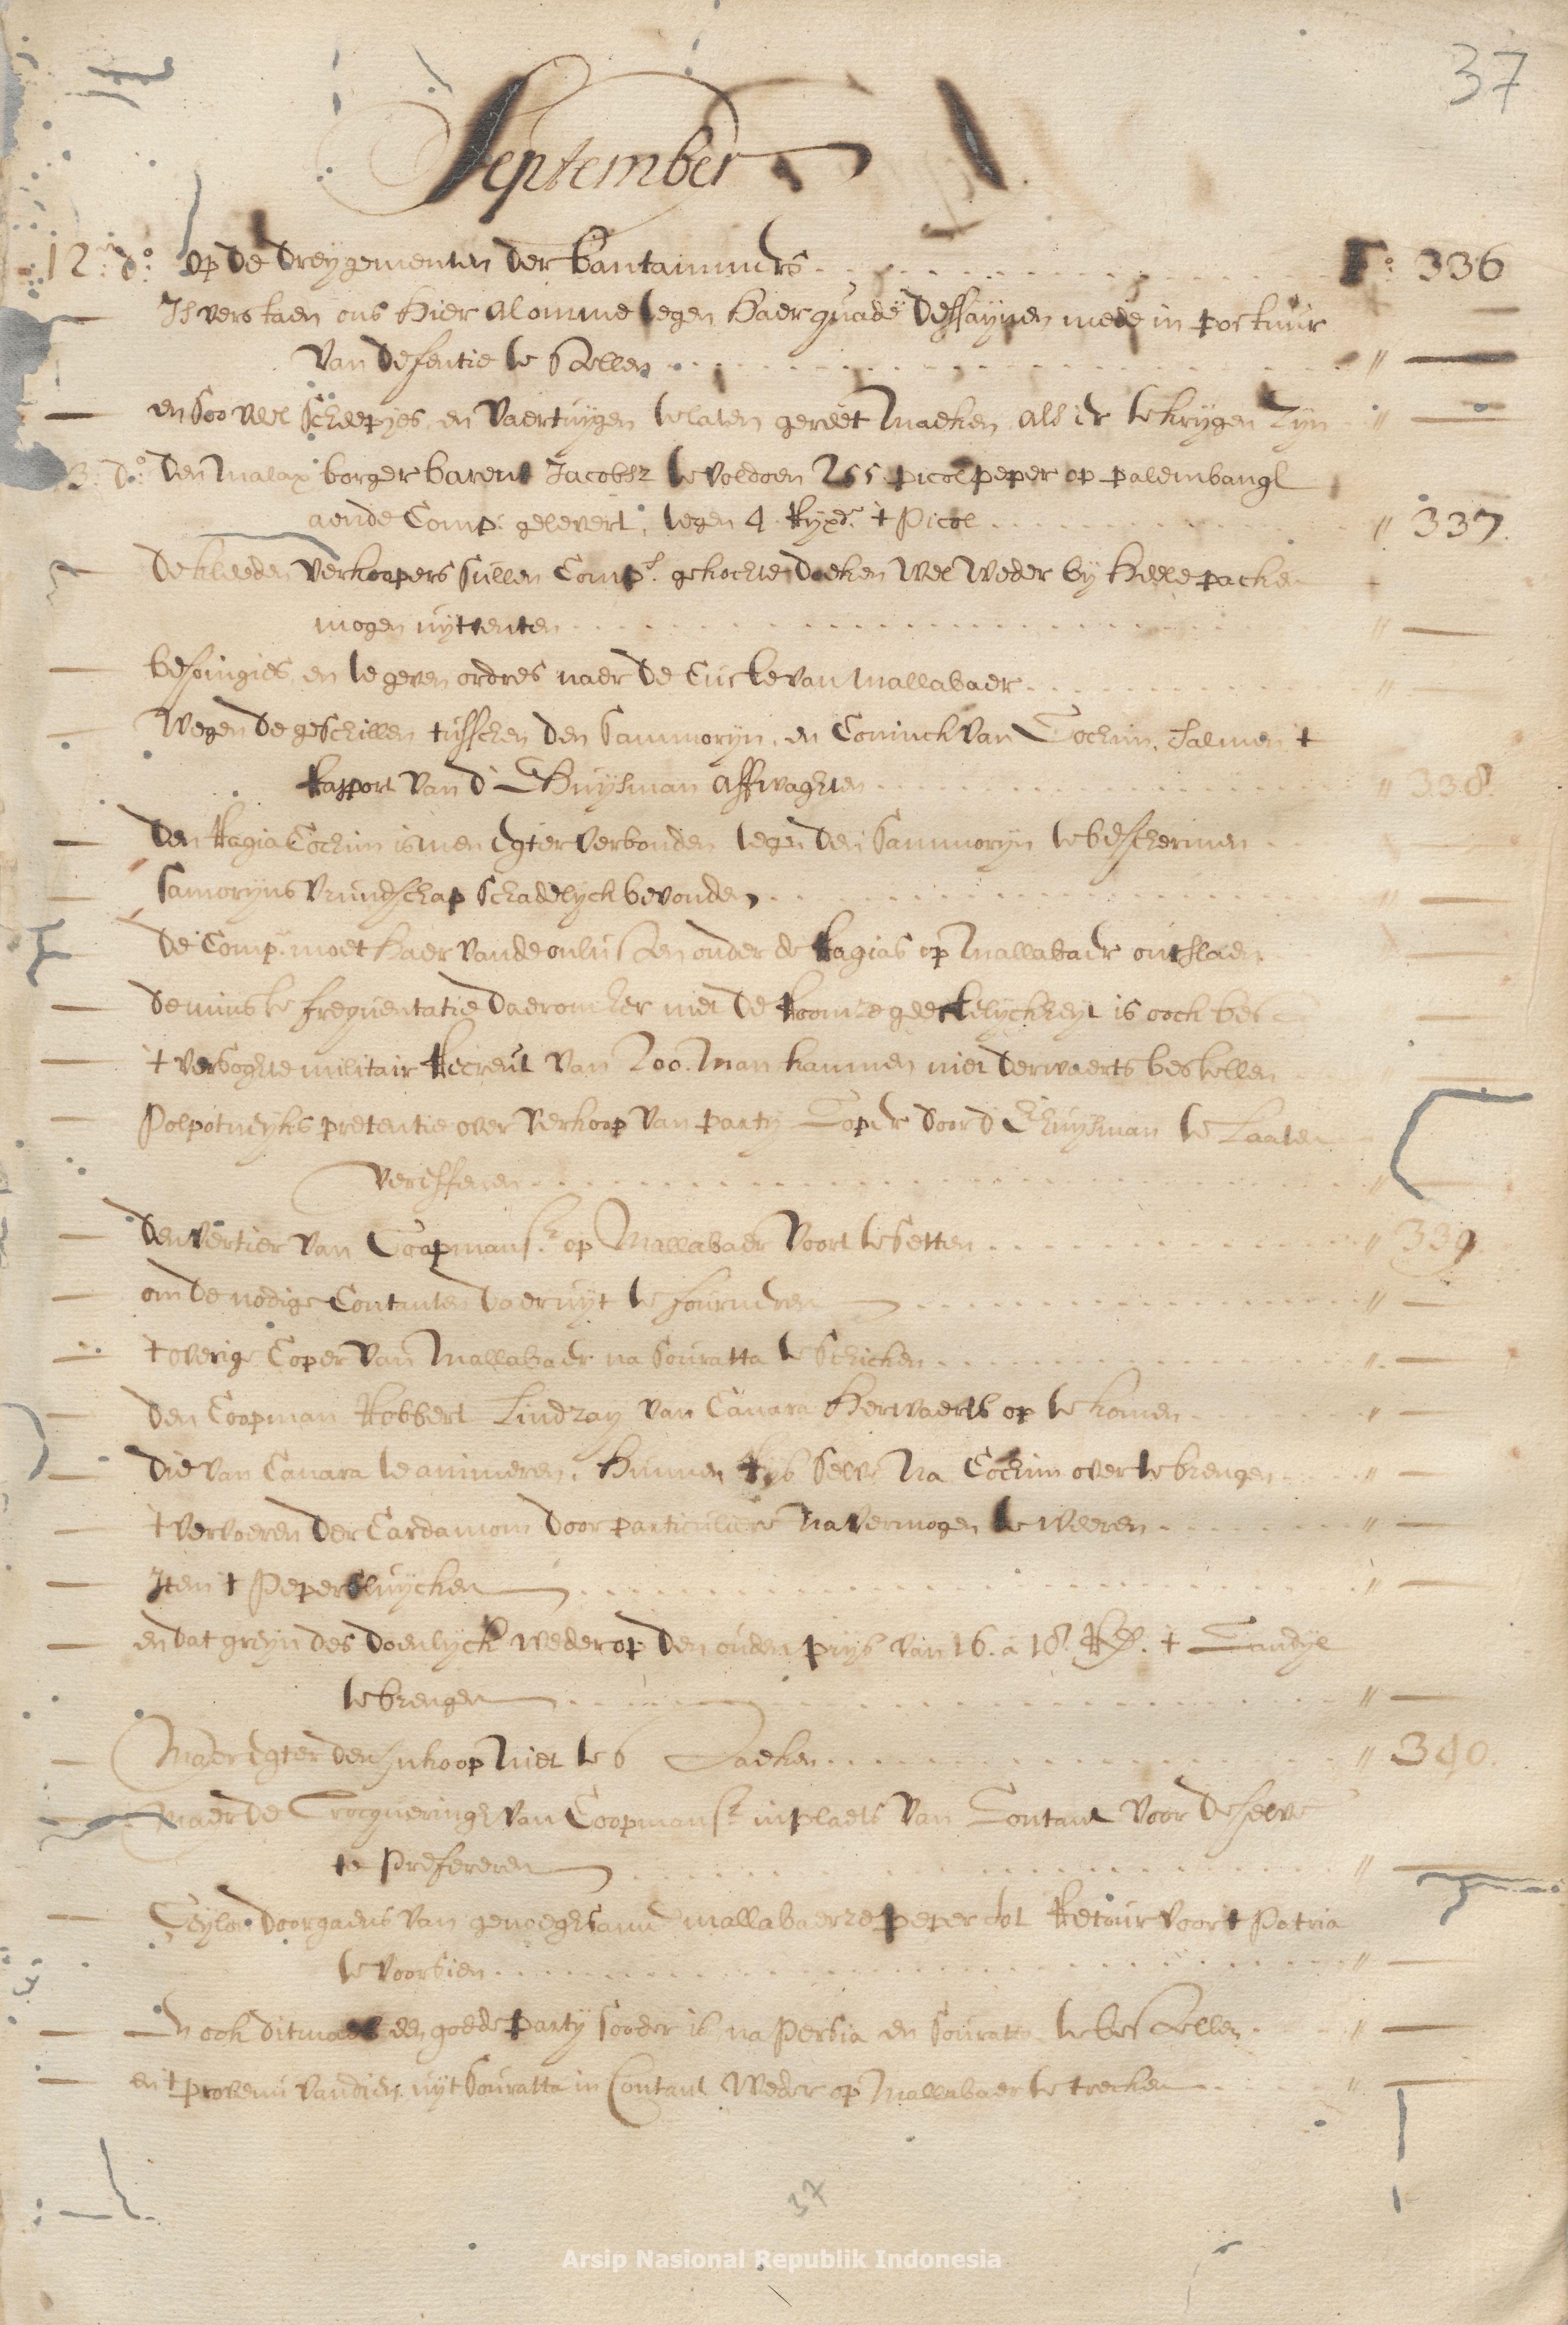 37
September
12: do: op de dreygementen der bantammers fo: 336
Is verstaen ons hier alomme tegen haer quade dessaynen mede in postuur
van defentie te stellen "
en soo veel scheepjes en vaertuygen te laten gereet maeken als er te krygen zyn "
3: do: den malax borger barent Jacobsz te voldoen 255 picol peper op palembangh
aende Comp: gelevert, tegen 4. Ryxd:s 't Picol " 337.
de kleeden verkoopers sullen Comp:s gekochte doeken wel weder by heele packen
mogen uytventen "
besoingies en te geven ordres naer de Custe van mallabaer "
Wegen de geschillen tusschen den Sammoryn, en Coninck van Cochim, salmen 't
Rapport van d' E huysman affwaghten " 338.
den Ragia Cochim is men egter verbonden tegen den Sammoryn te beschermen
Samoryns vrundschap schadelyck bevonden "
de Comp: moet haer vande onlusten onder de Ragias op mallabaer ontslaen
de minste frequentatie daeromher met de Roomse geestelyckheyt is ooch best
't versoghte militair Recreut van 200. man kan men niet derwaerts bestellen
Polpotneyks pretentie over verkoop van party Coper door d' E huysman te Laaten
vereffenen "
den vertier van Coopmansz: op Mallabaer voort te setten " 339.
om de nodige Contanten daer uyt te fourneren "
't overige Coper van Mallabaer na Souratta te schicken "
den Coopman Robbert Lindzay van Canara herwaerts op te komen "
die van Canara te animeren, hunnen Rys selve na Cochim over te brengen "
't vervoeren der Cardamom door particuliere na vermogen te weeren "
Item 't Peper sluycken "
en dat greyn des doenlyck weder op den ouden prys van 16. a 18. R:ds 't Candyl
te brengen "
Maer egter den Inkoop niet te staeken " 340.
maer de Trocqueringh van Coopmansz: in plaets van Contant voor deselve
te prefereren "
Ceylon doorgaens van genoeghsame mallabaerze peper tot Retour voor 't Patria
te voorsien "
En ook ditmael een goede party soo der is na Persia en Souratta te bestellen "
en 't provenu van dien uyt Souratta in Contant weder op Mallabaer te trecken "
37
Arsip Nasional Republik Indonesia